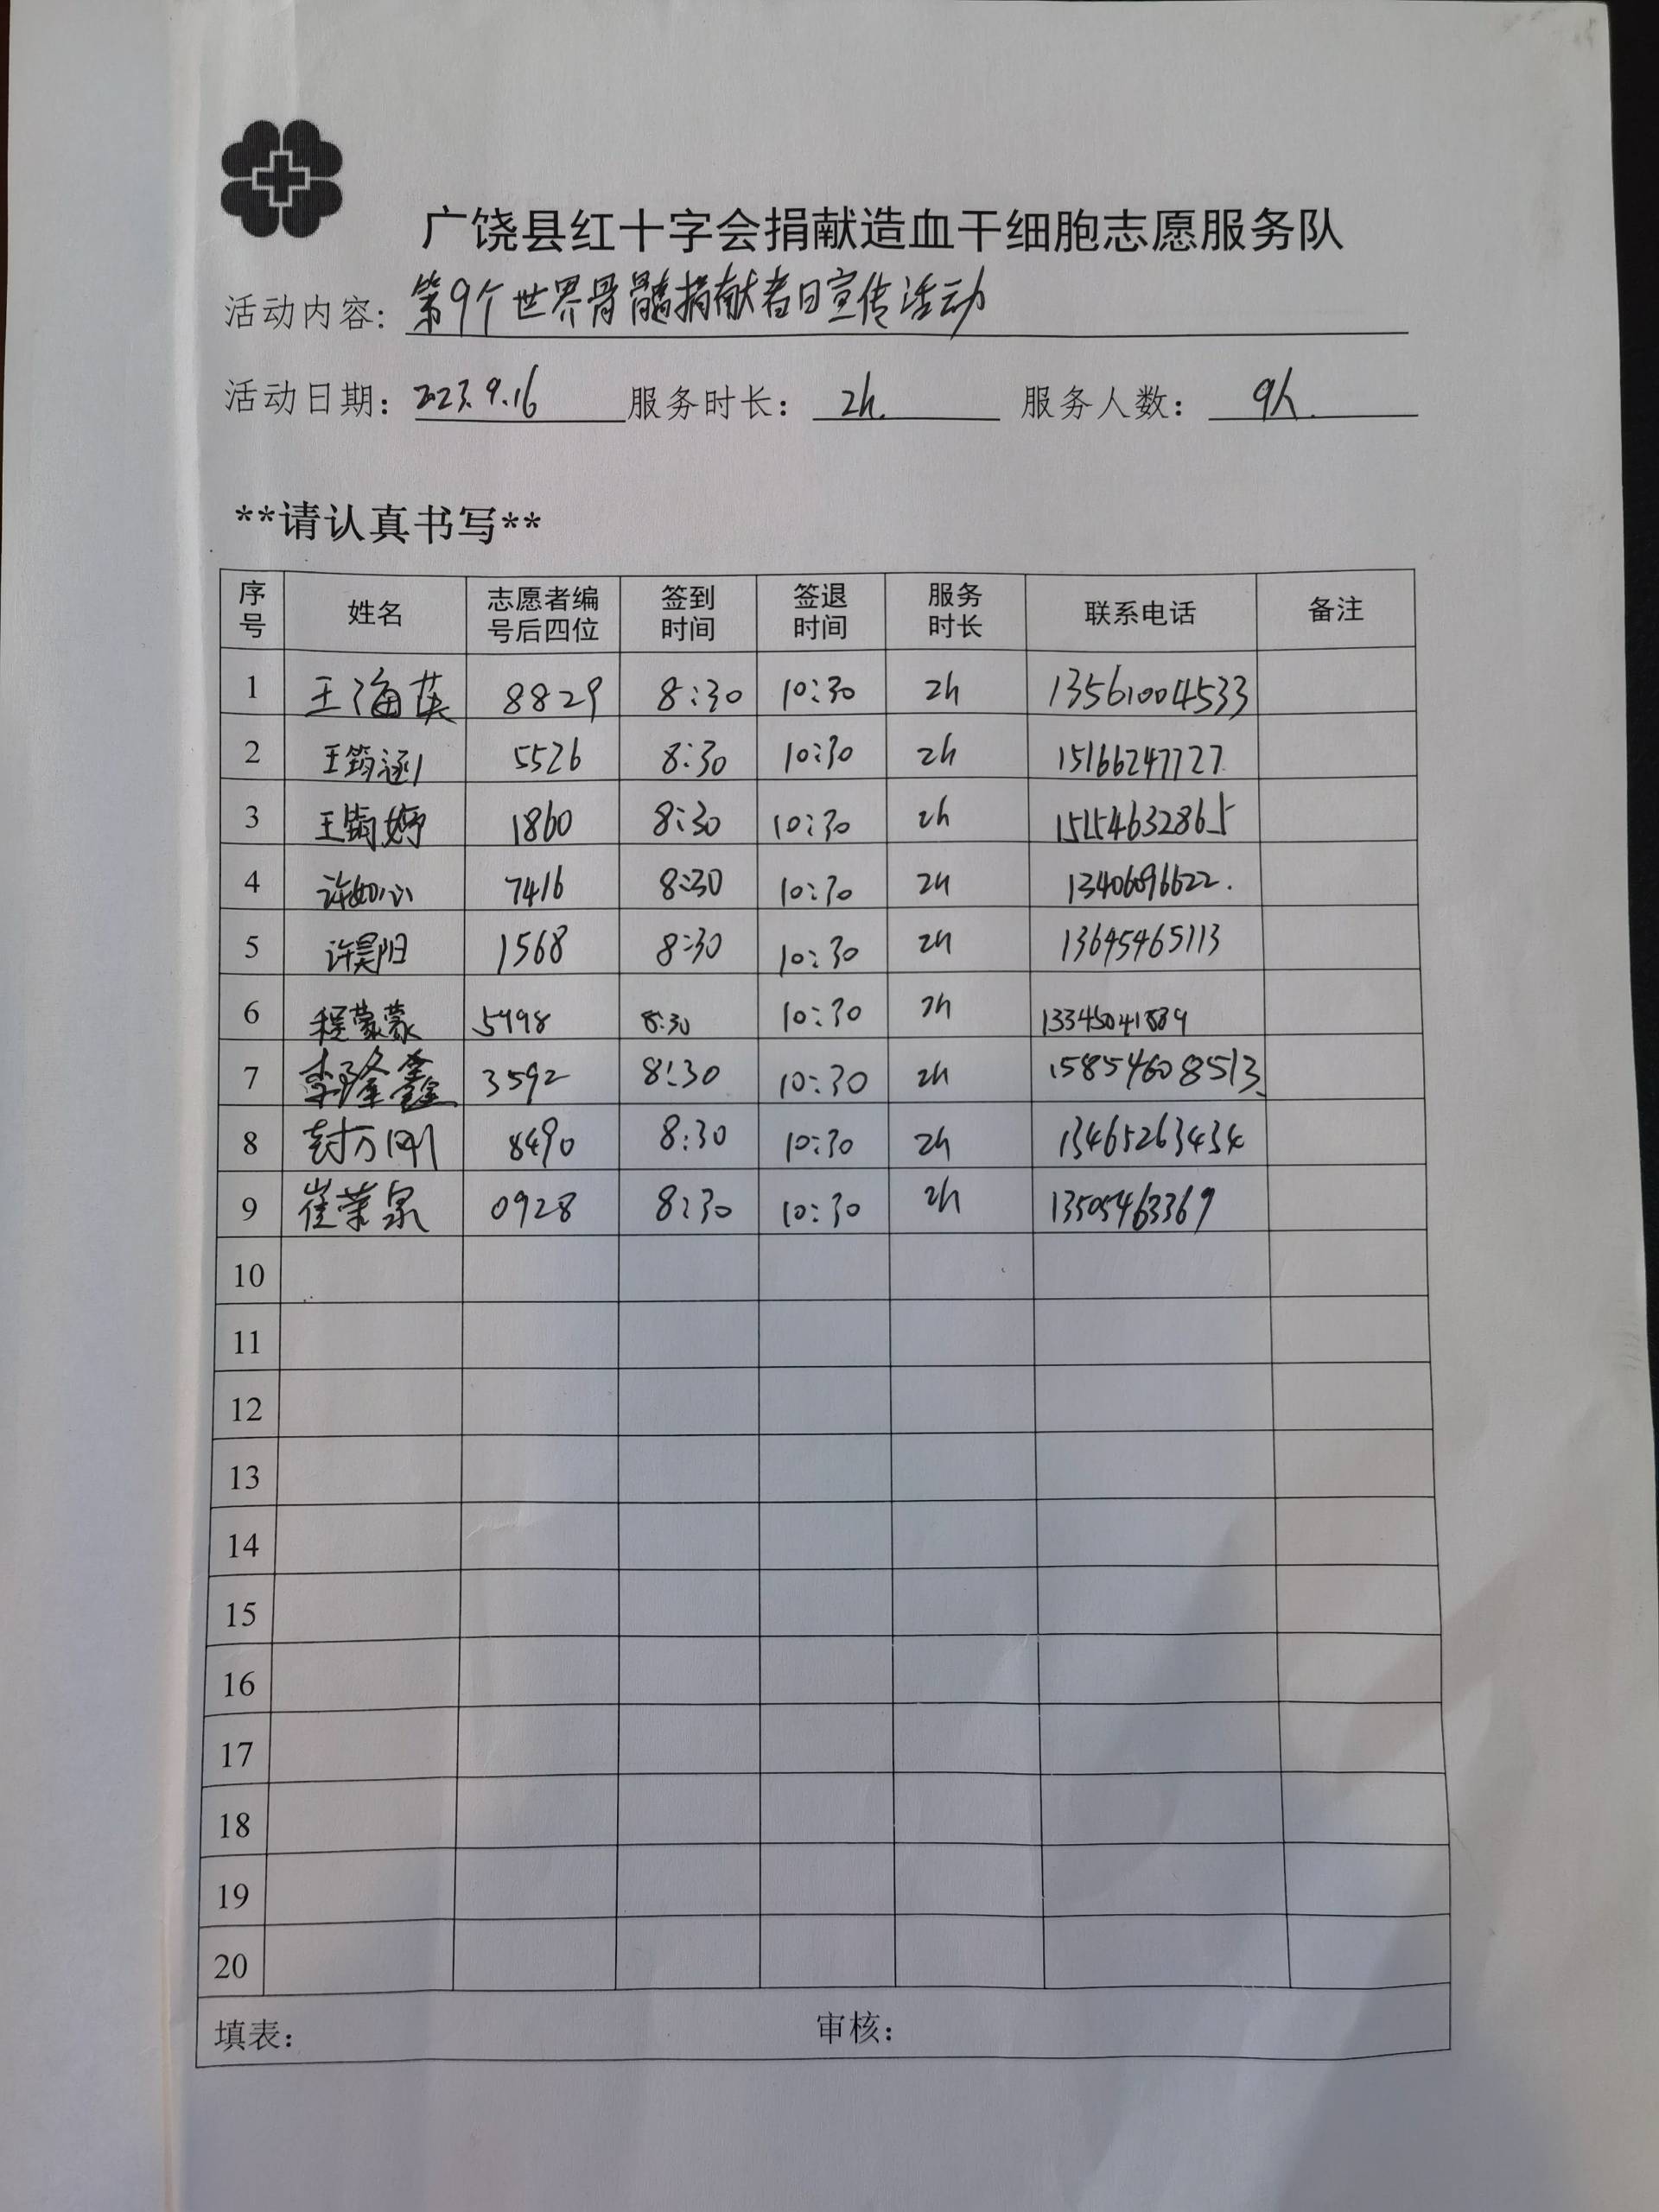 广饶县红十字会捐献造血干细胞志愿服务队
活动内容: 第9个世界骨髓捐献者日宣传活动
活动日期: 2023.9.16 服务时长: 2h. 服务人数: 9人.
**请认真书写**
序号 姓名 志愿者编号后四位 签到时间 签退时间 服务时长 联系电话 备注
1 王海英 8829 8:30 10:30 2h 13561004533
2 王筠涵 5526 8:30 10:30 2h 15166247727
3 王筠婷 1860 8:30 10:30 2h 15154632865
4 许如心 7416 8:30 10:30 2h 13406096622.
5 许昊阳 1568 8:30 10:30 2h 13645465113
6 程蒙蒙 8:30 10:30 2h
7 李隆鑫 3592 8:30 10:30 2h 15854608513
8 封万刚 8490 8:30 10:30 2h 13465263434
9 崔荣泉 0928 8:30 10:30 2h 13505463369
10
11
12
13
14
15
16
17
18
19
20
填表: 审核: